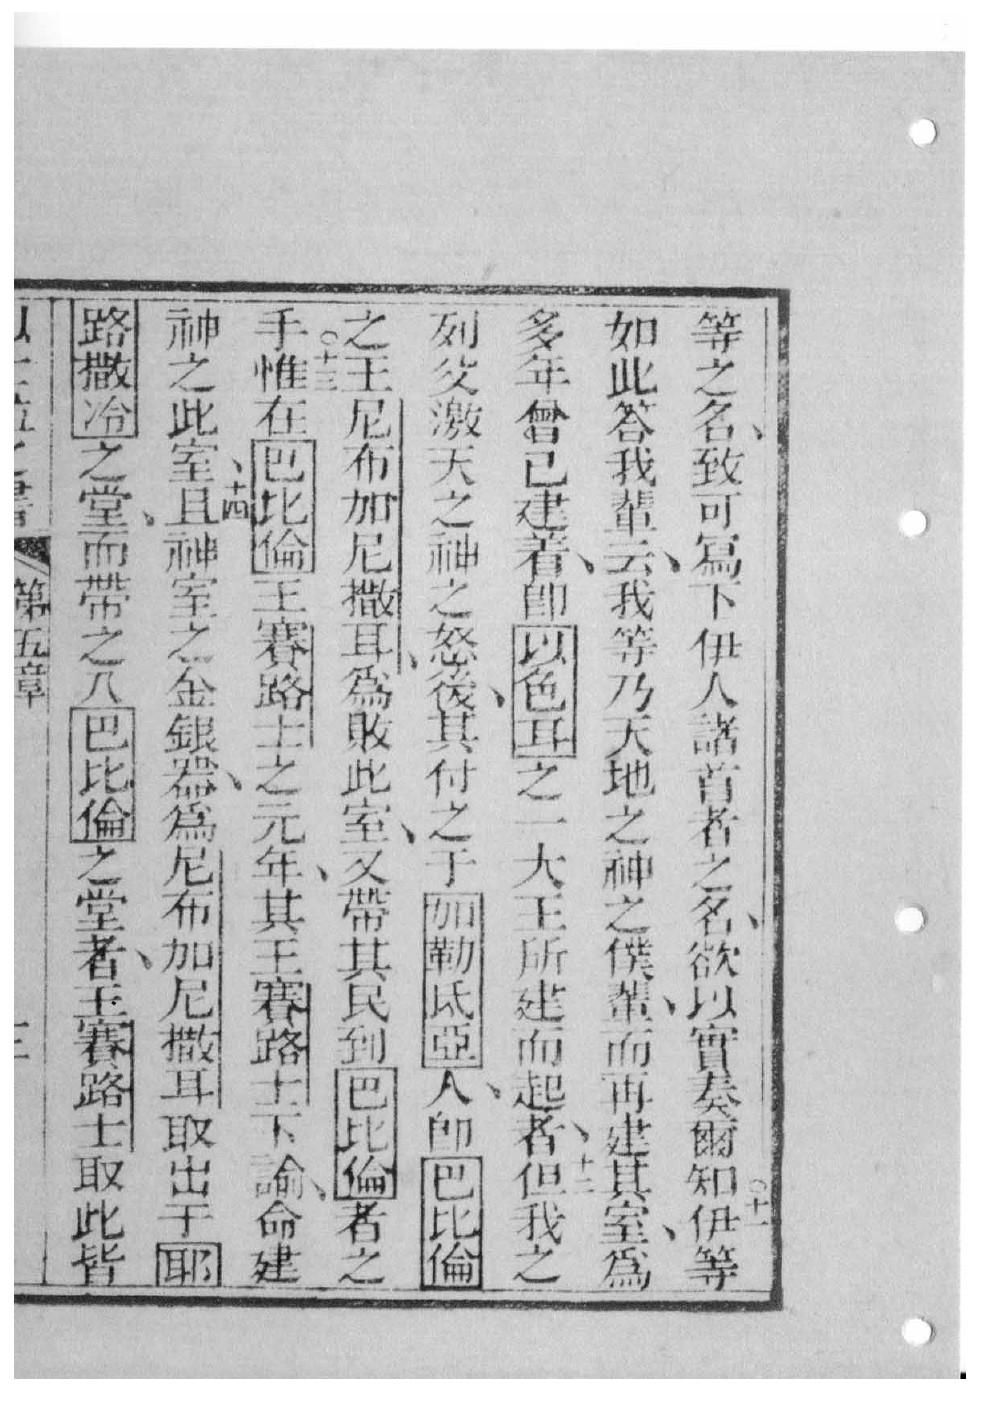 等之名、致可寫下伊人諸首者之名、欲以實奏爾知○十一伊等
如此答我輩云、我等乃天地之神之僕輩、而再建其室、爲
多年曾已建着、卽以色耳之一大王所建而起者、十二但我之
列父激天之神之怒後、其付之于加勒氐亞人、卽巴比倫
之王尼布加尼撒耳、爲敗此室、又帶其民到巴比倫者之
手○十三惟在巴比倫王賽路士之元年、其王賽路士下諭、命建
神之此室、十四且神室之金銀器、爲尼布加尼撒耳取出于耶
路撒冷之堂、而帶之入巴比倫之堂者、王賽路士取此皆
第五章